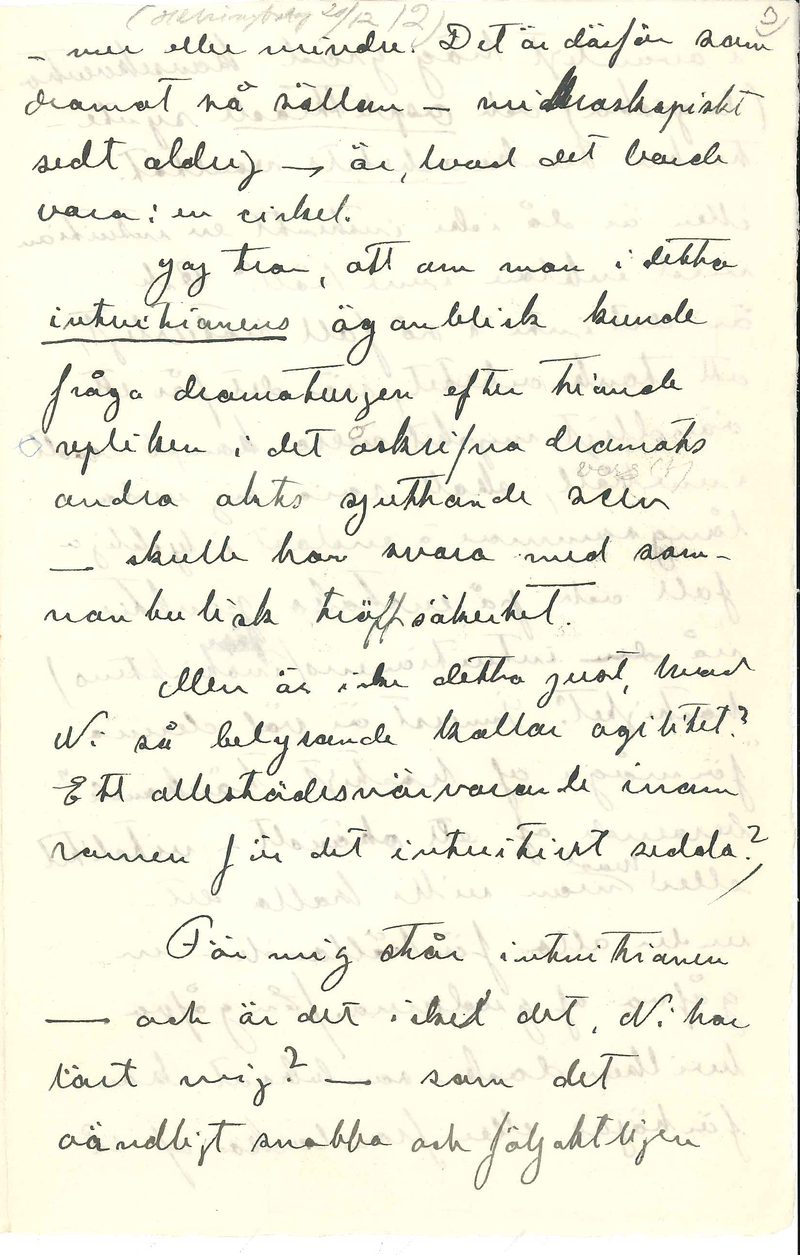 (Helsingborg 20/12 12) 3)
– mer eller mindre. Det är därför som
dramat så sällan – mikroskopiskt
sedt aldrig – är, hvad det borde
vara: en cirkel.
Jag tror, att om man i detta
intuitionens ögonblick kunde
fråga dramaturgen efter tionde
repliken i det oskrifna dramats
vers (?)
andra akts sjuttande scen
– skulle han svara med som-
nambulisk träffsäkerhet.
Men är icke detta just, hvad
Ni så belysande kallar agilitet?
Ett allestädesnärvarande inom
ramen för det intuitivt sedda?
För mig står intuitionen
– och är det icke det, Ni har
lärt mig? – som det
oändligt snabba och följaktligen